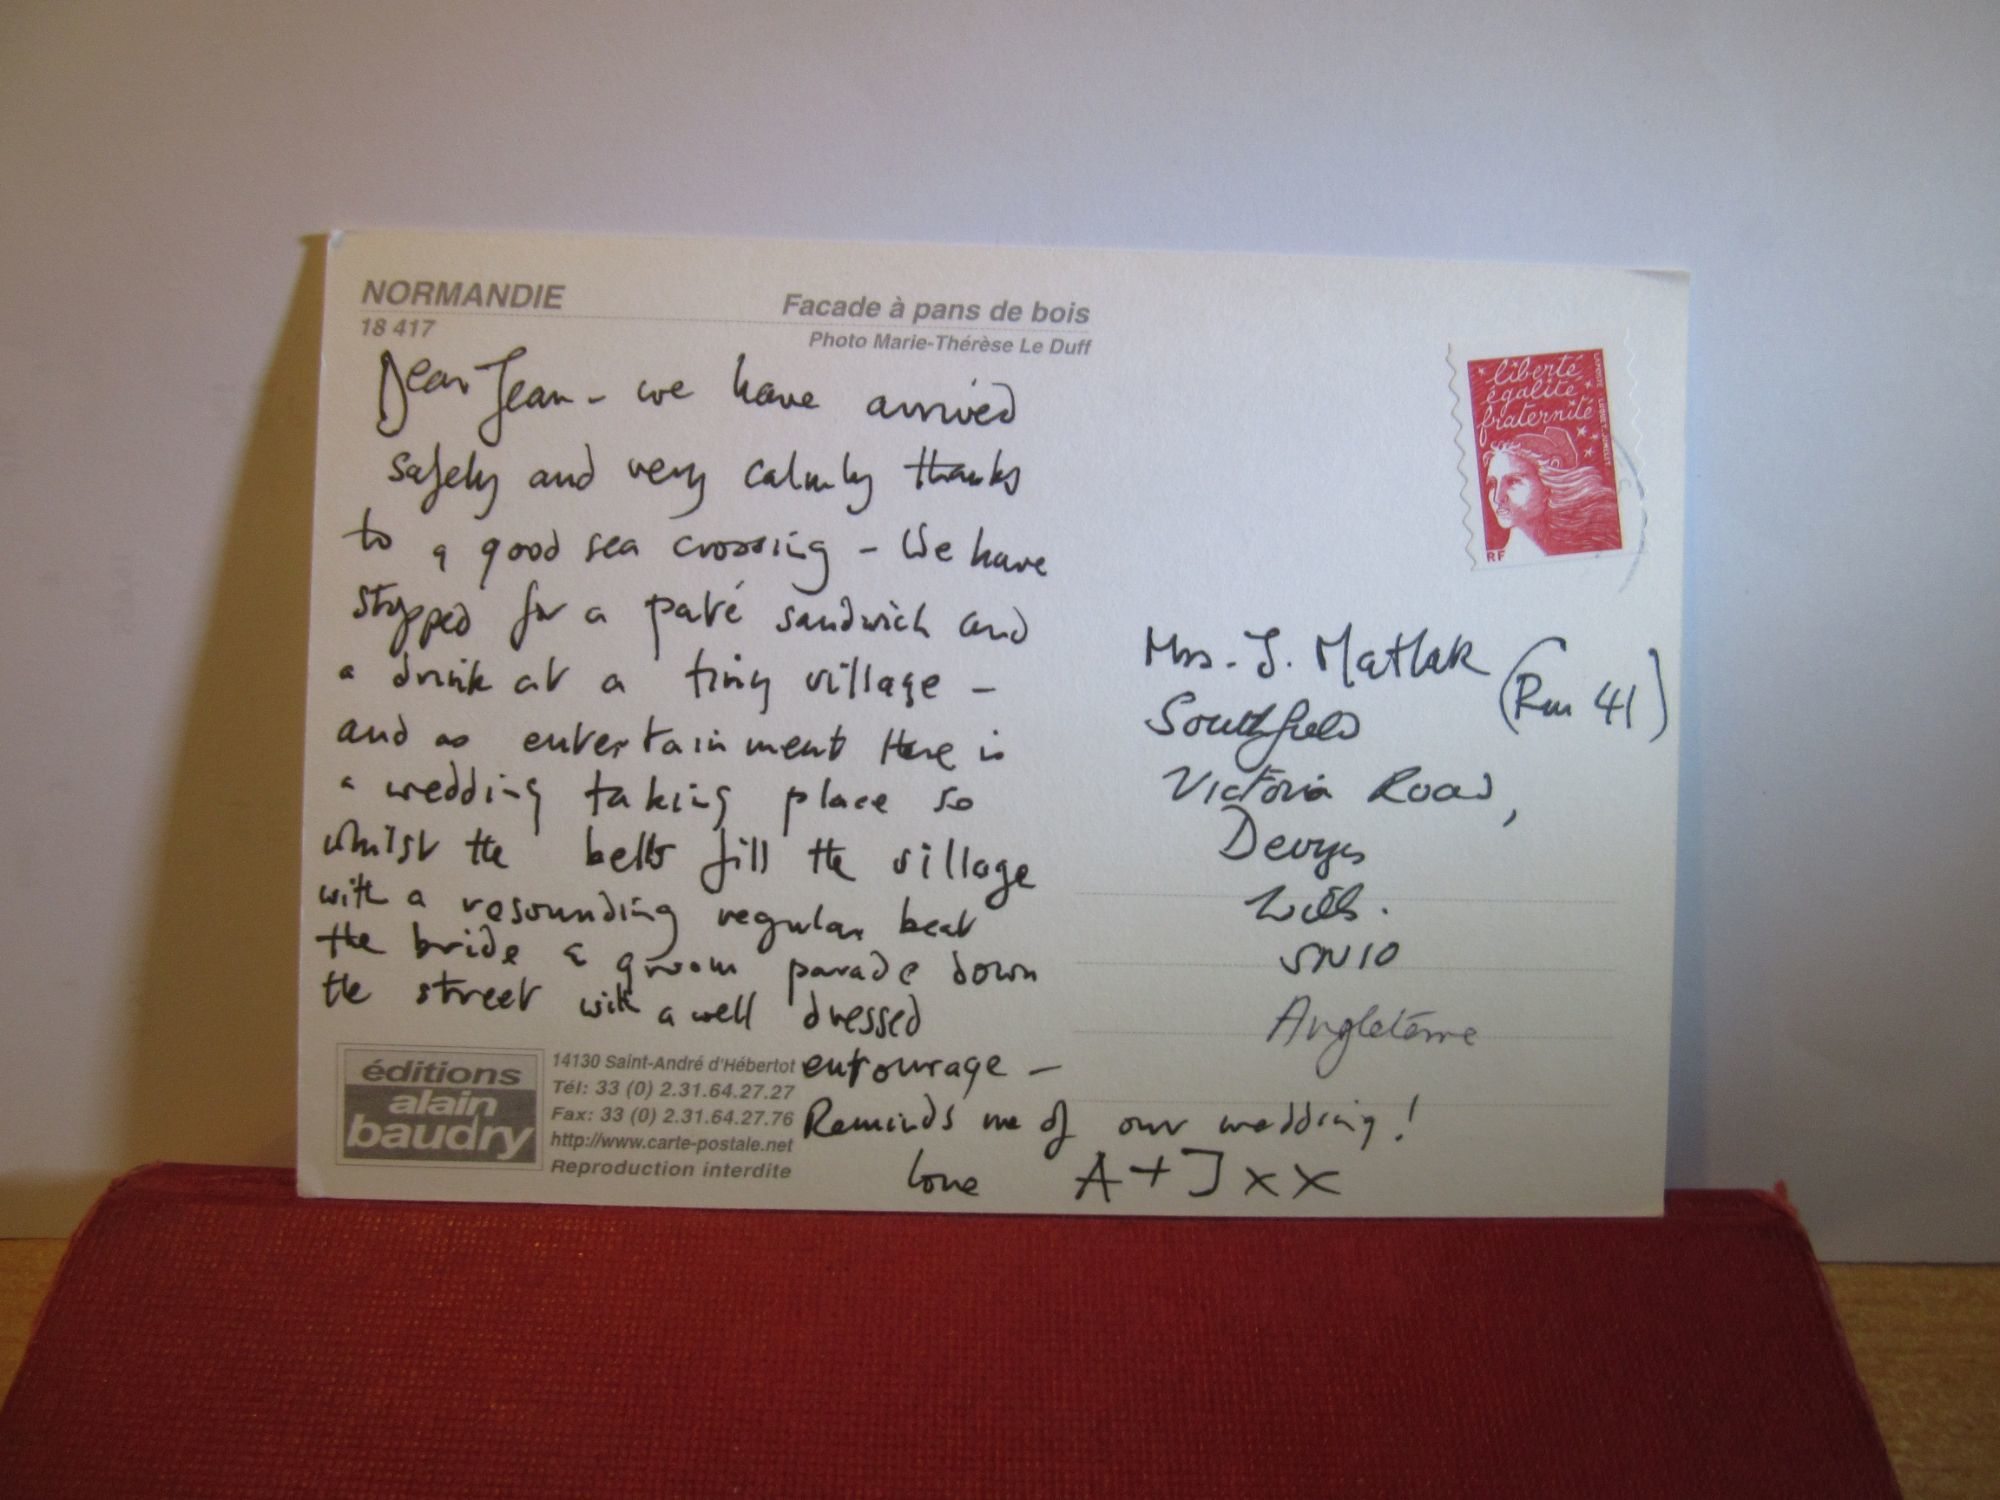 NORMANDIE
18 417
Facade à pans de bois
Photo Marie-Thérèse Le Duff
Dear Jean - we have arrived
safely and very calmly thanks
to a good sea crossing - We have
stopped for a paté sandwich and
a drink at a tiny village -
and as entertainment there is
a wedding taking place so
whilst the bells fill the village
with a resounding regular beat
the bride & groom parade down
the street with a well dressed
entourage -
Reminds me of our wedding!
love A + J x x
éditions
alain
baudry
14130 Saint-André d'Hébertot
Tél: 33 (0) 2.31.64.27.27
Fax: 33 (0) 2.31.64.27.76
http://www.carte-postale.net
Reproduction interdite
liberté
égalité
fraternité
RF
LA POSTE LUQUET. JUMELET
Mrs. J. Matlak (Rm 41)
Southfield
Victoria Road,
Devizes
Wilts.
SN10
Angleterre